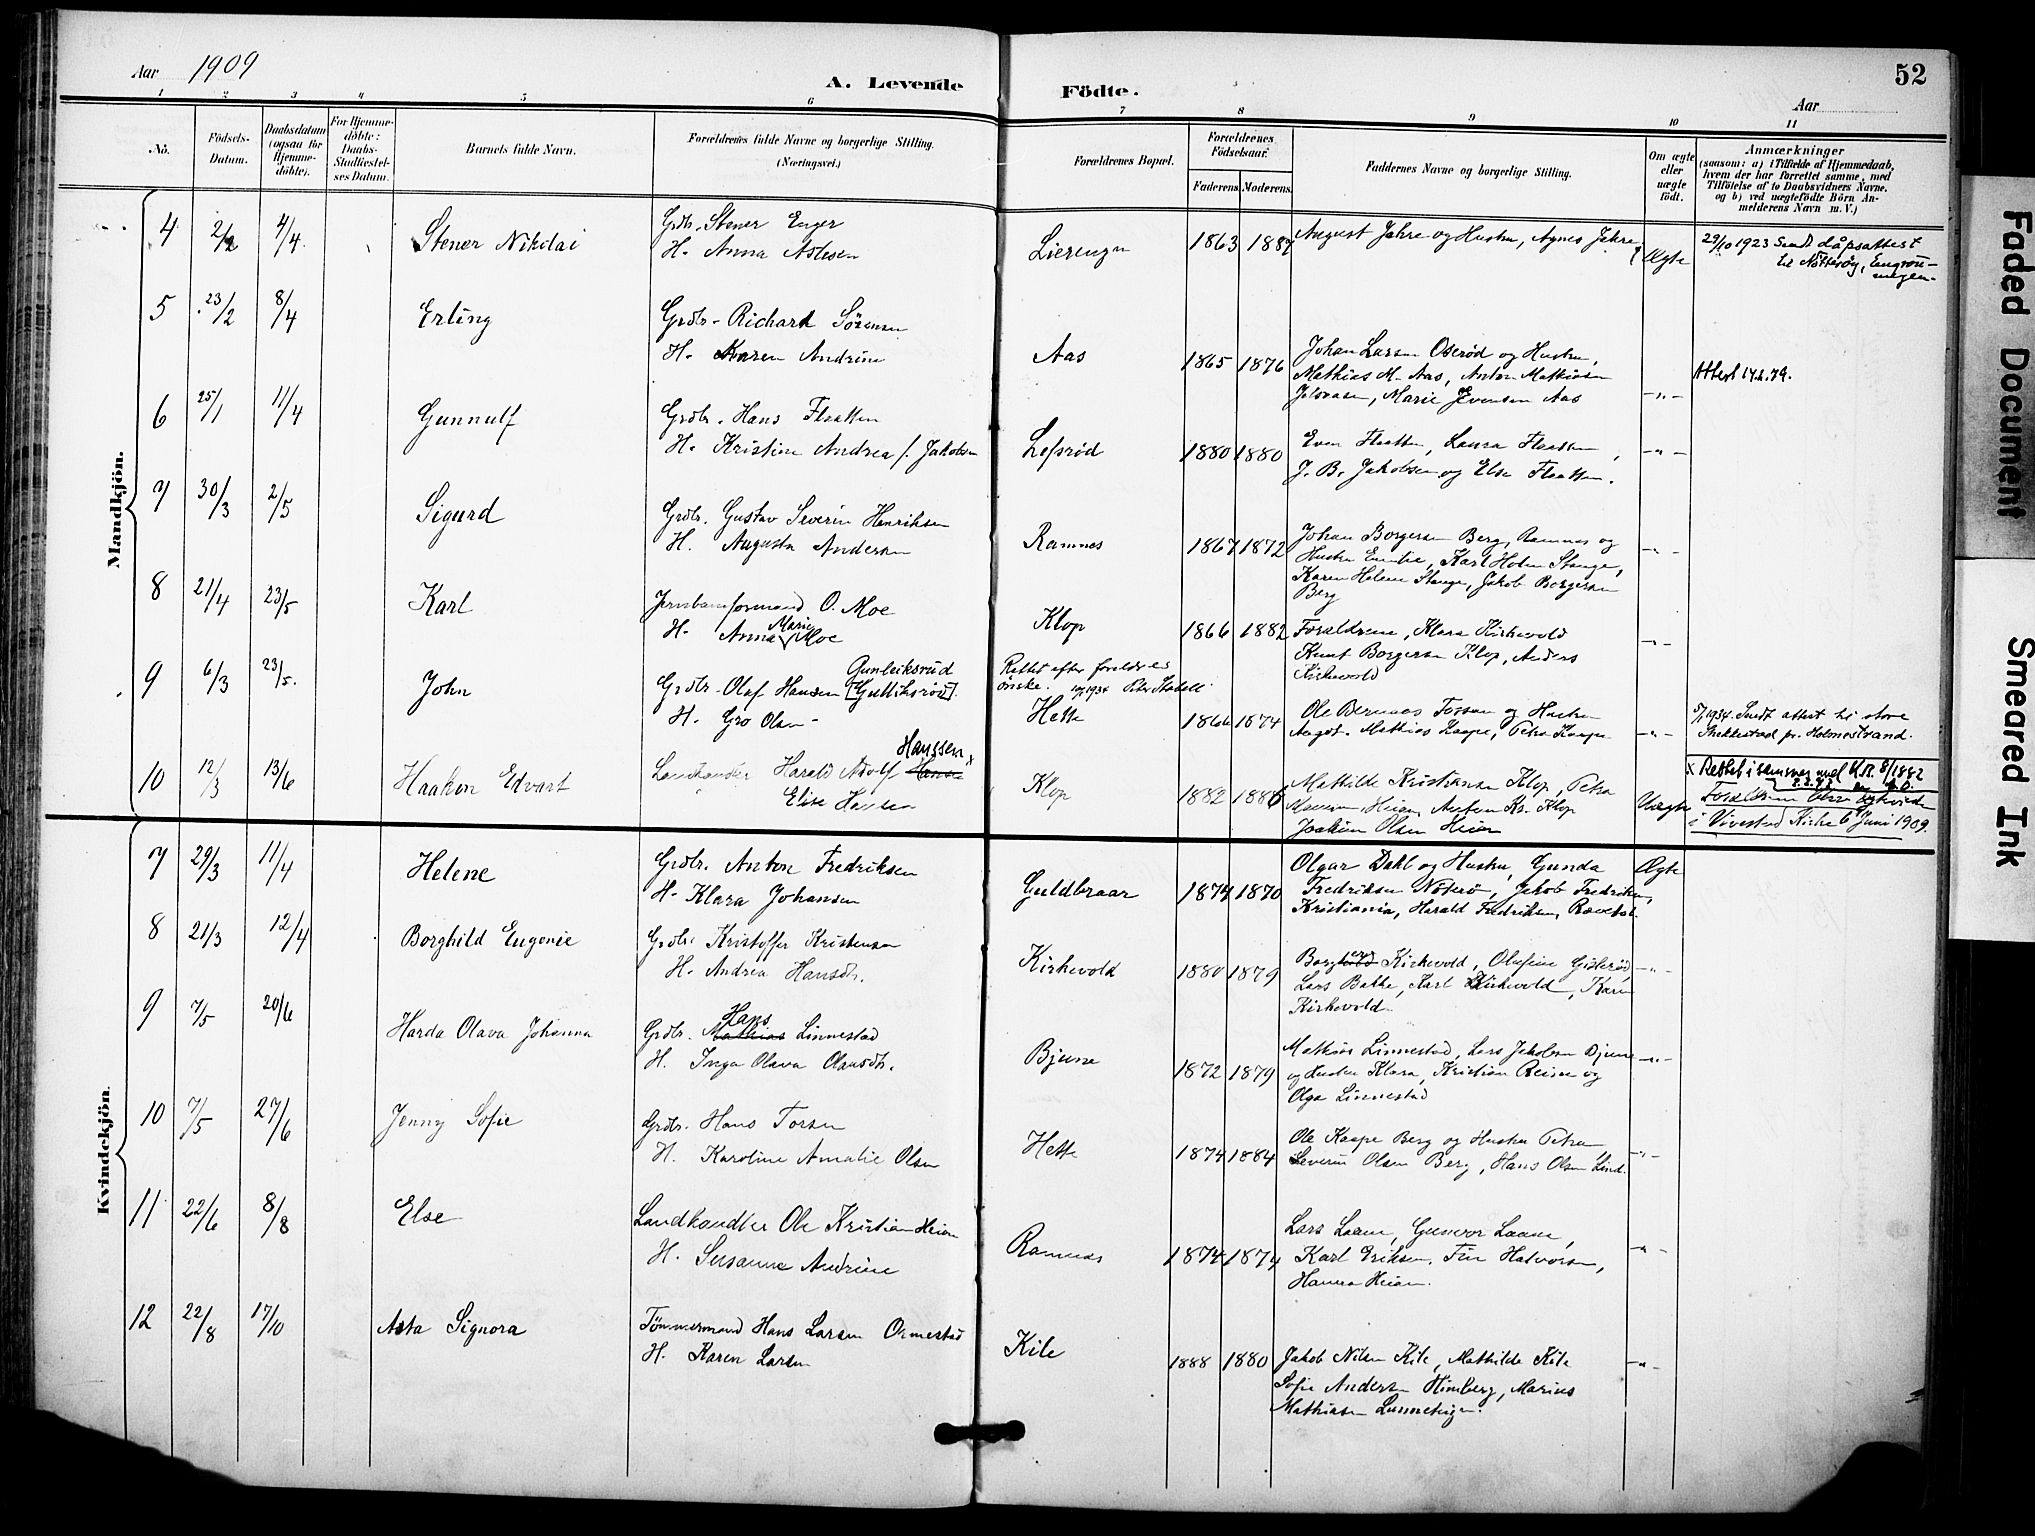 Aar 1909
A. Levende Födte.
52
Aar
1 2 3 4 5 6 7 8 9 10 11
No.
Födsels-Datum.
Daabsdatum (ogsaa for Hjemme-döbte).
For Hjemme-döbte: Daabs-Stadfæstel-ses Datum.
Barnets fulde Navn.
Forældrenes fulde Navne og borgerlige Stilling. (Næringsvei.)
Forældrenes Bopæl.
Forældrenes Födselsaar.
Faderens. Moderens.
Faddernes Navne og borgerlige Stilling.
Om ægte eller uægte födt.
Anmærkninger
(saasom: a) i Tilfælde af Hjemmedaab, hvem der har forrettet samme, med Tilföielse af to Daabsvidners Navne, og b) ved uægtefödte Börn An-melderens Navn m. V.)
Mandkjön.
4 2/2 4/4 Stener Nikolai Grdbr. Stener Enger
H. Anna Aslesen
Lierengen 1863 1887 August Jahre og Hustru, Agnes Jahre Ægte
29/10 1923 Sendt dåpsattest
til Nøtterøy,
5 23/2 8/4 Erling Grdbr. Richard Sørensen
H. Karen Andrine
Aas 1865 1876 Johan Larsen Oserød og Hustru,
Mathias M. Aas, Anton Mathisen
Marie Evensen Aas -"-
Attest 14.2.79.
6 25/1 11/4 Gunnulf Grdbr. Hans Flaatten
H. Kristine Andrea f. Jakobsen
Lefsrød 1880 1880 Even Flaatten, Laura Flaatten,
J. B. Jakobsen og Else Flaatten. -"-
7 30/3 2/5 Sigurd Grdbr. Gustav Severin Henriksen
H. Augusta Andersen
Ramnes 1867 1872 Johan Borgersen Berg, Ramnes og
Hustru Emilie, Karl Holm Stange,
Karen Helene Stange, Jakob Borgersen
Berg -"-
8 21/4 23/5 Karl Jernbaneformand O. Moe
H. Anna Marie Moe
Klop 1866 1882 Forældrene, Klara Kirkevold
Knut Borgersen Klop, Anders
Kirkevold -"-
9 6/3 23/5. John Gunleiksrud
Grdbr. Olaf Hansen [Gulliksrød].
H. Gro Olsen
Rettet efter foreldrenes
ønske. 1934
Hette 1866 1874 Ole Berntsen Fossan og Hustru
Mathias Kaape, Petra Kaape -"-
5/1 1934. Sendt attest til store
pr. Holmestrand.
10 12/3 13/6 Haakon Edvart Landhandler Harald Adolf Hansen Hanssen x
Elise Hansen
Klop 1882 1886 Mathilde Kristiansen Klop, Petra
Heian, Kr. Klop
Joakim Olsen Heian Uægte
x Rettet i samsvar med K.R. 8/1882
Forældrene
i Vivestad Kirke 6 Juni 1909.
Kvindekjön.
7 29/3 11/4 Helene Grdbr. Anton Fredriksen
H. Klara Johansen
Guldbraar 1874 1870 Olgar Dahl og Hustru, Gunda
Fredriksen Nøterø, Jakob Fredriksen,
Kristiania, Harald Fredriksen, Ramnes. Ægte
8 21/3 12/4 Borghild Eugenie Grdbr. Kristoffer Kristensen
H. Andrea Hansdtr.
Kirkevold 1880 1879 Kirkevold, Olufine Gislerød,
Lars Bakke, Karl Kirkevold, Karen
Kirkevold. -"-
9 7/5 20/6 Harda Olava Johanna Hans
Grdbr. Mathias Linnestad
H. Inga Olava Olausdtr.
Bjune 1872 1879 Mathias Linnestad, Lars Jakobsen Bjune
og Hustru Klara, Kristian Reine og
Olga Linnestad -"-
10 7/5 27/6 Jenny Sofie Grdbr. Hans Torsen
H. Karoline Amalie Olsen
Hette 1874 1884 Ole Kaape Berg og Hustru Petra
Severin Olsen Berg, Hans Olsen Lind. -"-
11 22/6 8/8 Else Landhandler Ole Kristian Heian
H. Susanne Andrine
Ramnes 1874 1874 Lars Laane, Gunvor Laane,
Karl Eriksen, Halvorsen,
Hanna Heian. -"-
12 22/8 17/10 Asta Signora Tömmermand Hans Larsen Ormestad
H. Karen Larsen
Kile 1888 1880 Jakob Nilsen Kile, Mathilde Kile
Sofie Andersen Himberg, Marius
Mathisen -"-
Faded Document
Smeared Ink